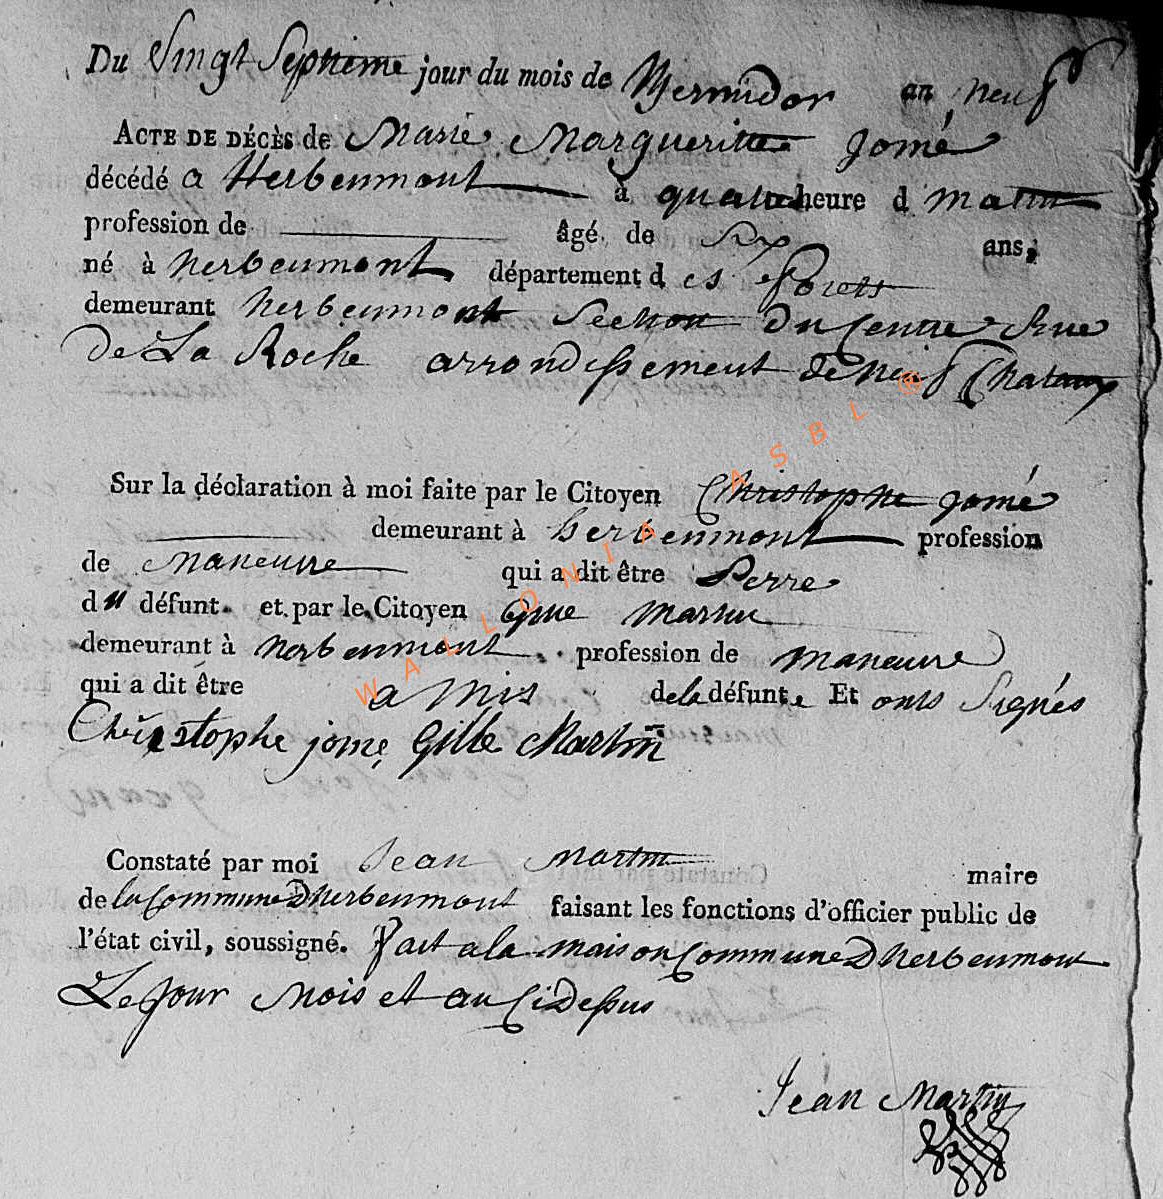 Du Vingt Septieme jour du mois de Thermidor an neuf
ACTE DE DÉCÈS de Marie Margueritte Jomé
décédé a Herbeumont à quatre heure d matin
profession de âgé de Six ans,
né à herbeumont département d es forets
demeurant herbeumont Section Du Centre Rue
De La Roche arrondissement de neufChateaux
Sur la déclaration à moi faite par le Citoyen Christophe Jomé
demeurant à herbeumont profession
de maneuvre qui a dit être Perre
du défunt. et par le Citoyen Martin
demeurant à herbeumont profession de maneuvre
qui a dit être amis de la défunte Et onts Signés
Christophe jome Gille Martin
Constaté par moi Jean Martin maire
de la Commune Dherbeumont faisant les fonctions d'officier public de
l'état civil, soussigné. fait a la maison Commune Dherbeumont
Le Jour Mois et an CiDessus
Jean Martin
WALLONIA ASBL ®